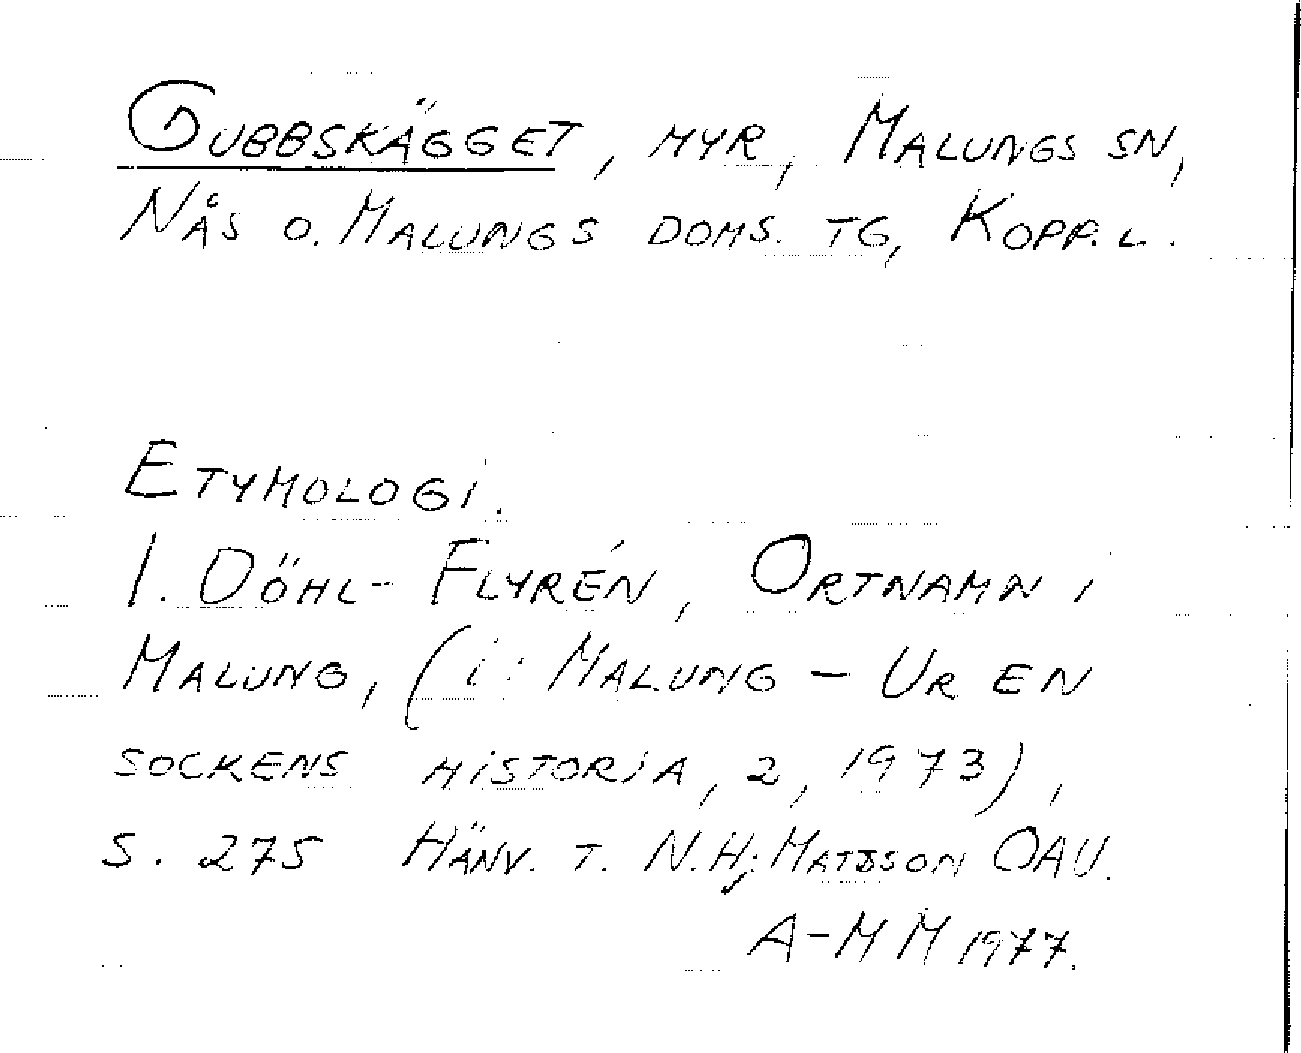 GUBBSKÄGGET, MYR, MALUNGS SN,
NÅS O. MALUNGS DOMS. TG, KOPP. L.
ETYMOLOGI.
I. DÖHL-FLYRÉN, ORTNAMN I
MALUNG, (i: MALUNG – UR EN
SOCKENS HISTORIA, 2, 1973),
S. 275 HÄNV. T. N. Hj. MATSSON OAU.
A-MM 1977.